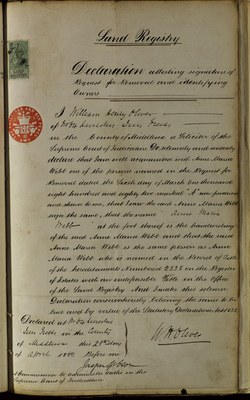 Land Registry
Declaration attesting signature of
Request for Removal and identifying
Owners
I William Henry Oliver
of No Lincolns Inn Fields
in the County of Middlesex a Solicitor of the
Supreme Court of Judicature Do solemnly and sincerely
declare that I am well acquainted with Anne Maria
Webb one of the persons named in the Request for
Removal dated the day of March One thousand
eight hundred and eighty two marked A now produced
and shown to me, that I saw the said Anne Maria Webb
sign the same, that the name Anne Maria
Webb at the foot thereof is the handwriting
of the said Anne Maria Webb and that the said
Anne Maria Webb is the same person as Anne
Maria Webb who is named in the Record of Title
of the hereditaments Numbered 2328 on the Register
of Estates with an indefeasible Title in the Office
of the Land Registry And I make this solemn
Declaration conscientiously believing the same to be
true and by virtue of the Statutory Declarations Act 1835
Declared at Lincolns
Inn Fields in the County
of Middlesex this 21st day
of April 1882 Before me
W H Oliver
A Commissioner to administer Oaths in the
Supreme Court of Judicature